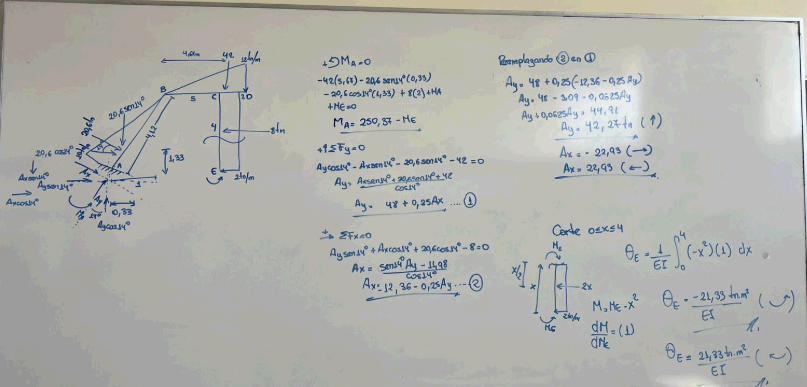 4,67m
42
12tn/m
B
5
C
2
D
20,6sen14°
20,6tn
4,12
4
8tn
20,6cos14°
A
1,33
E
2tn/m
Axsen14°
Aysen14°
1
Axcos14°
14°
0,33
Aycos14°
ΣMA=0
-42(5,67)-20,6sen14°(0,33)
-20,6cos14°(1,33)+8(2)+MA
+ME=0
MA=250,37-ME
ΣFy=0
Aycos14°-Axsen14°-20,6sen14°-42=0
Ay=Axsen14°+20,6sen14°+42
cos14°
Ay= 48+0,25Ax .... ①
ΣFx=0
Aysen14°+Axcos14°+20,6cos14°-8=0
Ax=12,36-0,25Ay ... ②
Reemplazando ② en ①
Ay= 48+0,25(-12,36-0,25Ay)
Ay= 48-3,09-0,0625Ay
Ay+0,0625Ay= 44,91
Ay= 42,27tn (↑)
Ax= -22,93 (→)
Ax= 22,93 (←)
Corte 0≤x≤4
ME
x/2
x
2x
2tn/m
ME
M=ME-x²
dM
dME
=(1)
θE= 1/EI ∫₀⁴(-x²)(1) dx
θE= -21,33 tn.m²
EI
θE= 21,33 tn.m²
EI